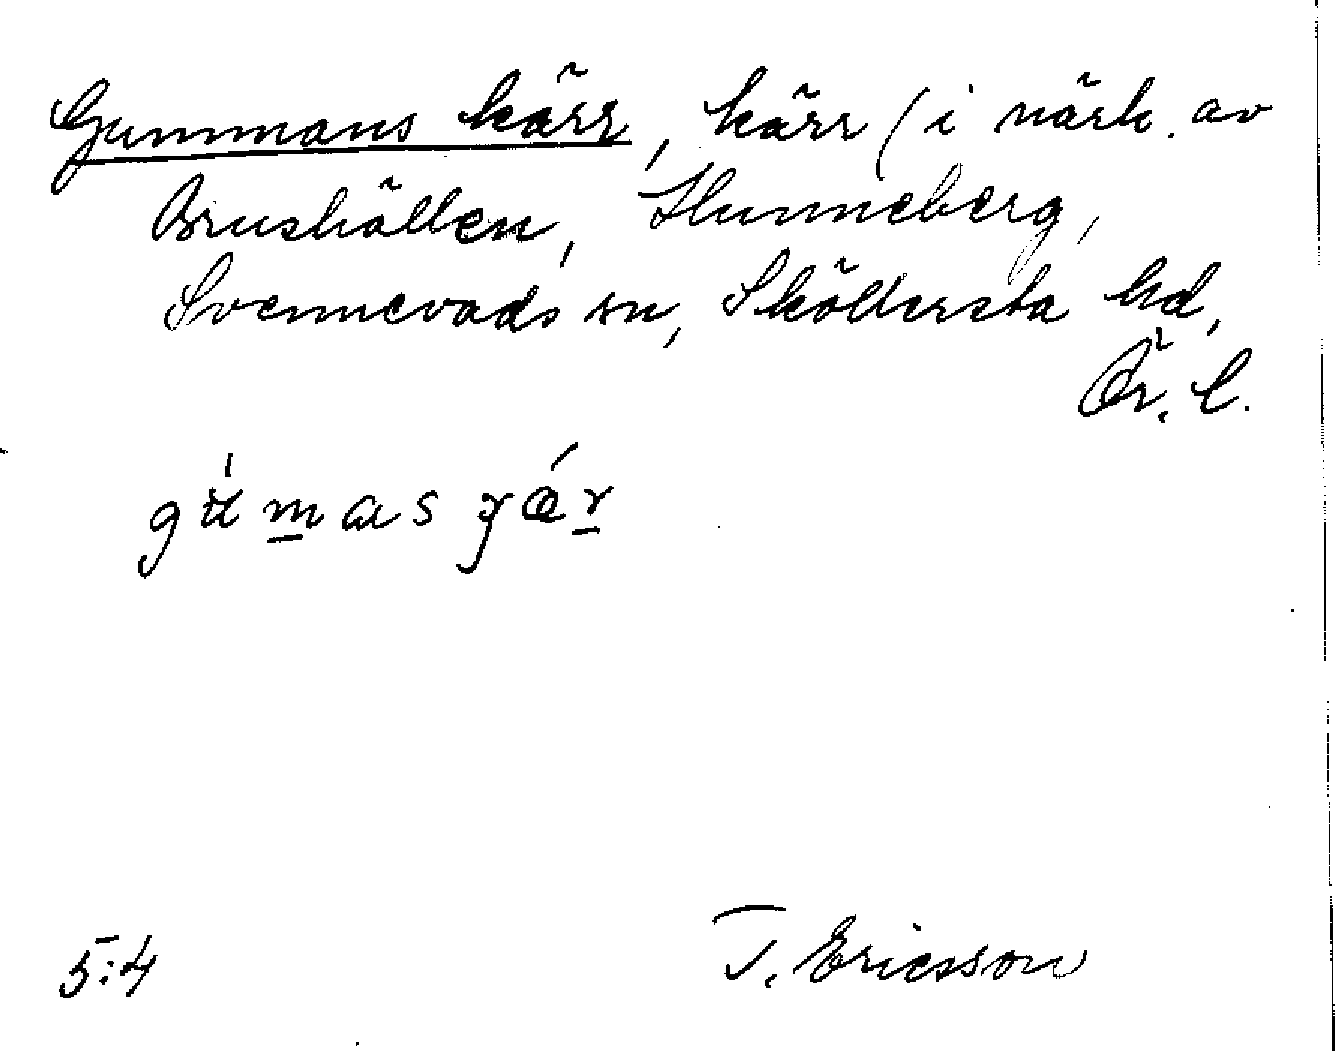 Gummans kärr, kärr (i närh. av
Brushällen, Hunneberg,
Svennevads sn, Sköllersta hd,
Ör. l.
5:4
T. Ericsson